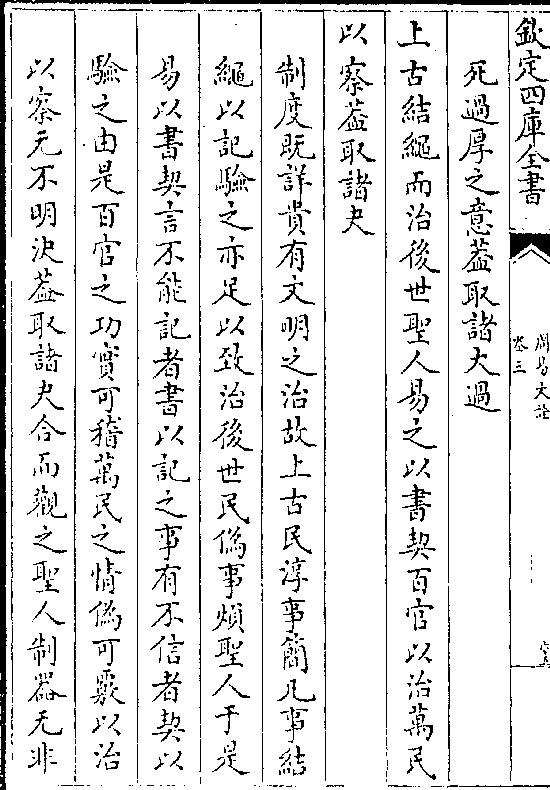 欽定四庫全書
周易大詮
卷三
死過厚之意葢取諸大過
上古結繩而治後世聖人易之以書契百官以治萬民
以察葢取諸夬
制度既詳貴有文明之治故上古民淳事簡凡事結
繩以記驗之亦足以致治後世民偽事煩聖人于是
易以書契言不能記者書以記之事有不信者契以
驗之由是百官之功實可稽萬民之情偽可覈以治
以察无不明決葢取諸夬合而觀之聖人制器无非